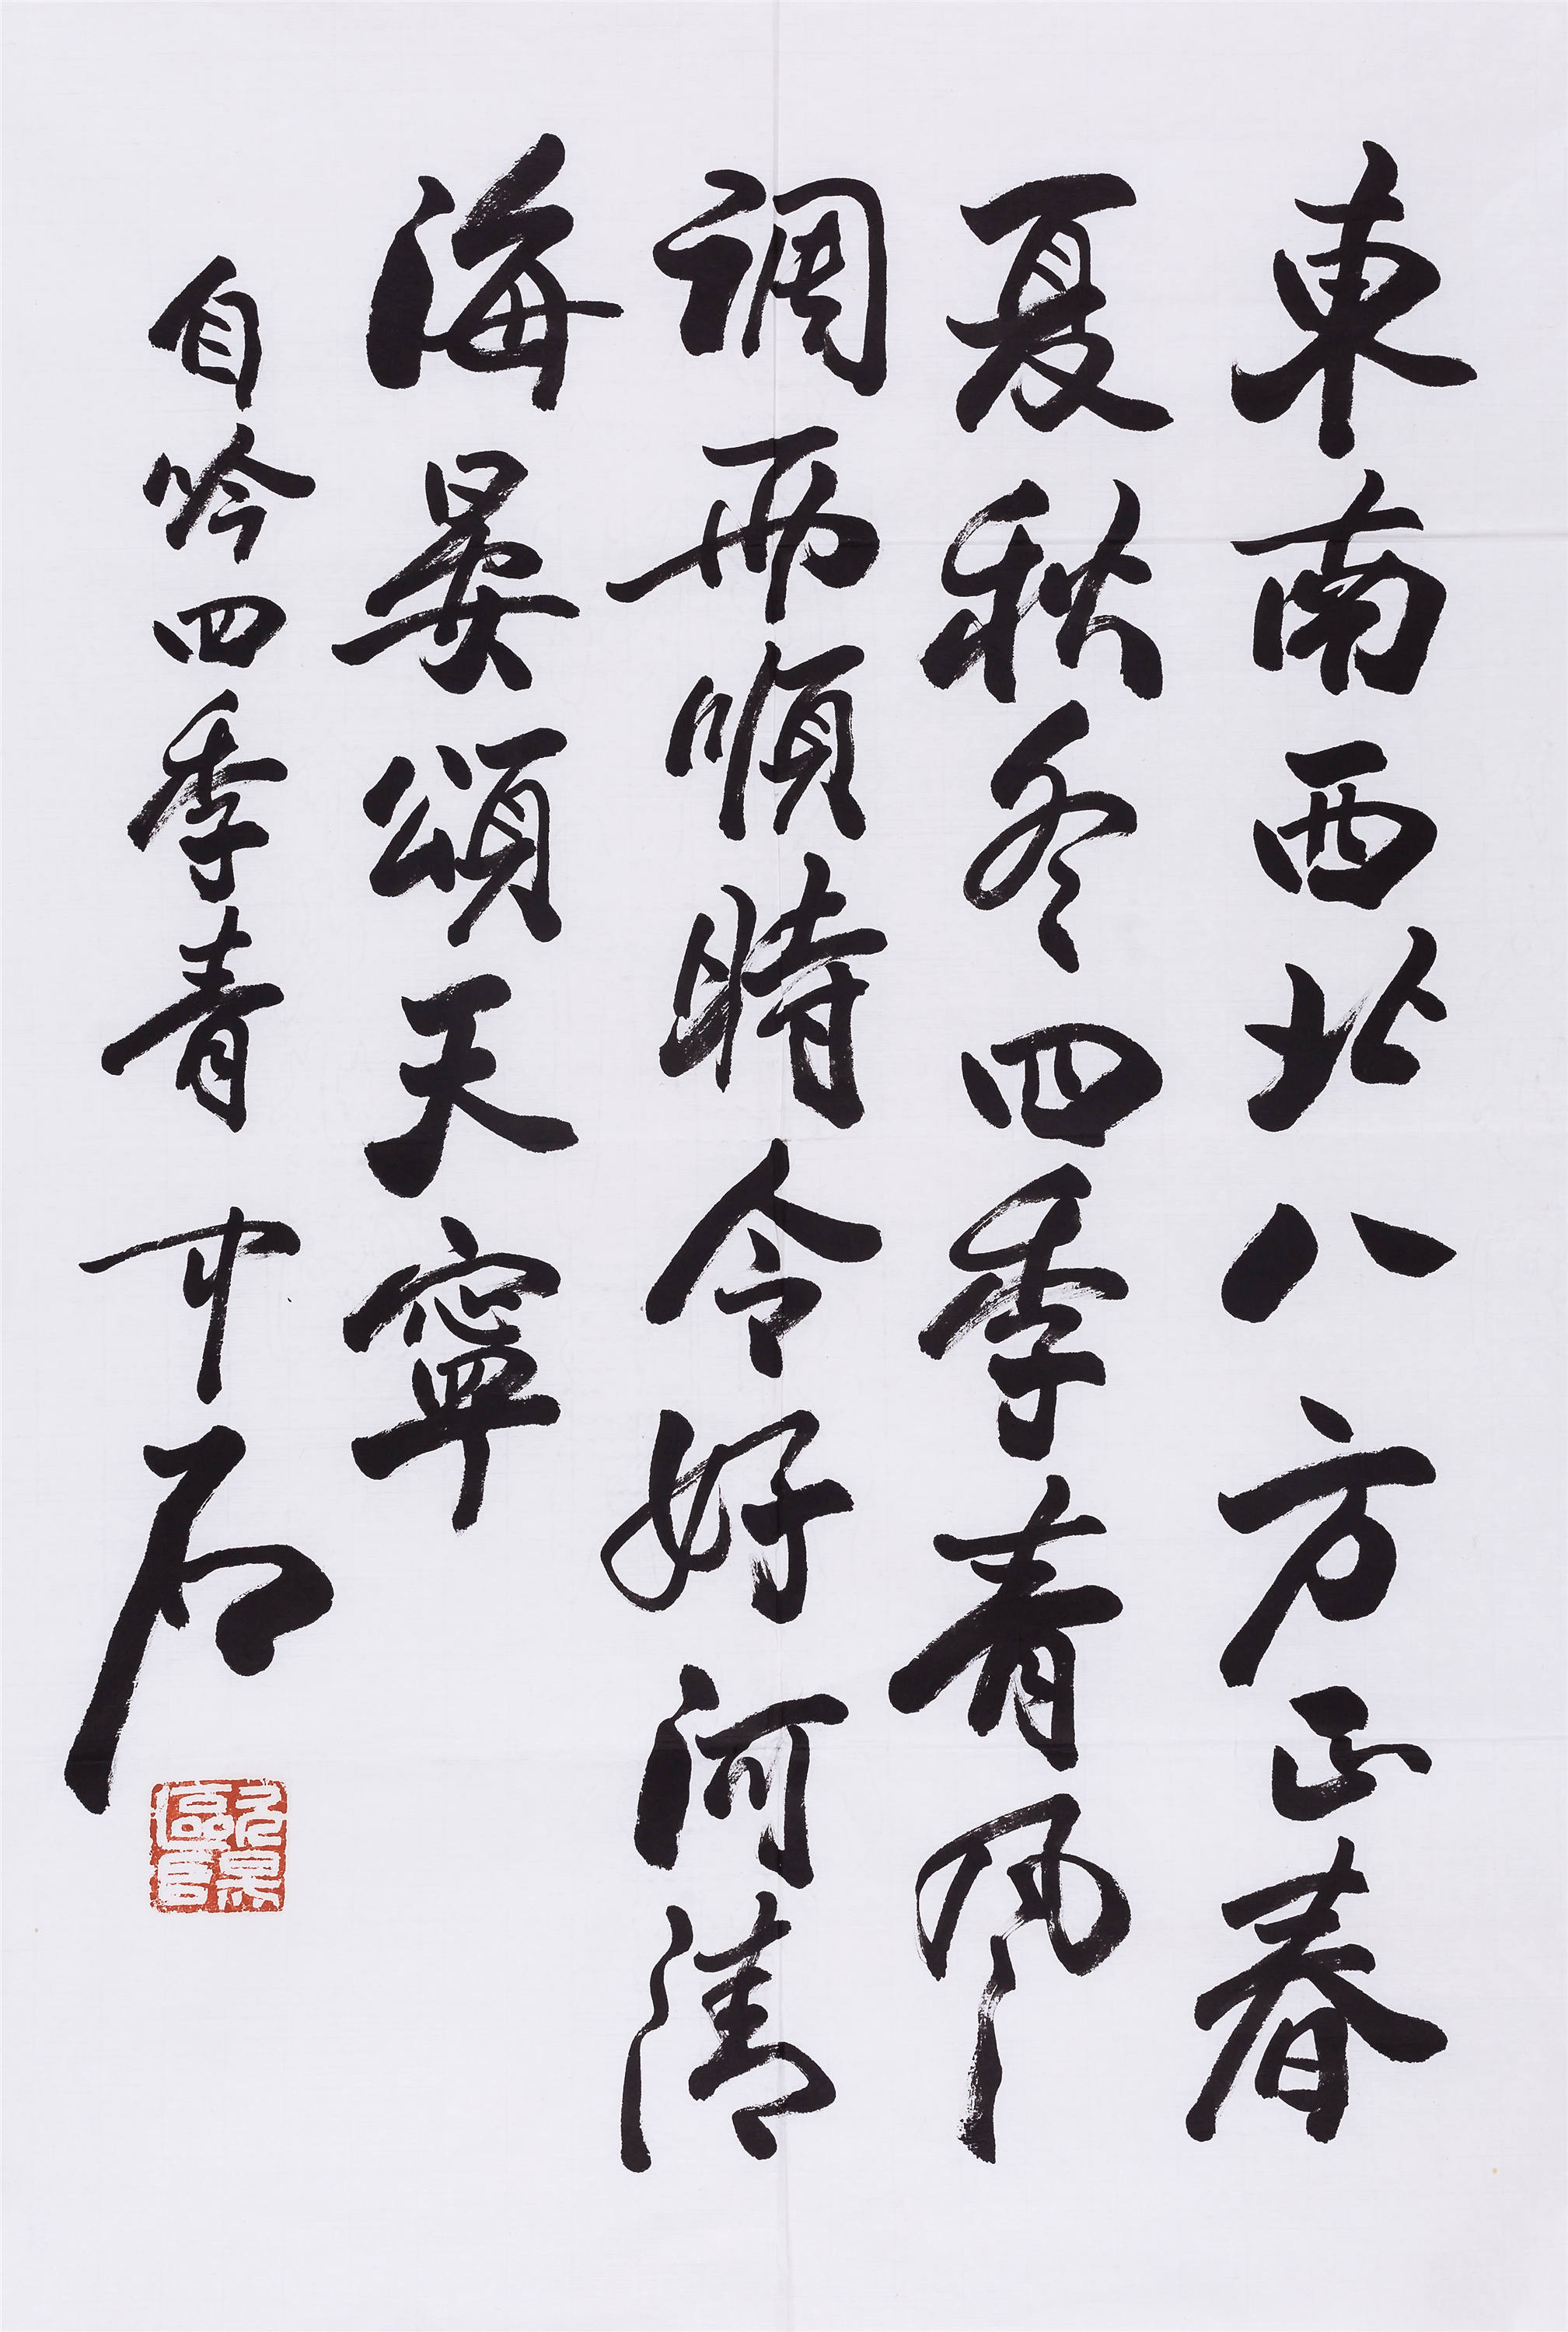 東南西北八方正春
夏秋冬四季青風
調雨順時令好河清
海晏頌天寧
自吟四季青 中石